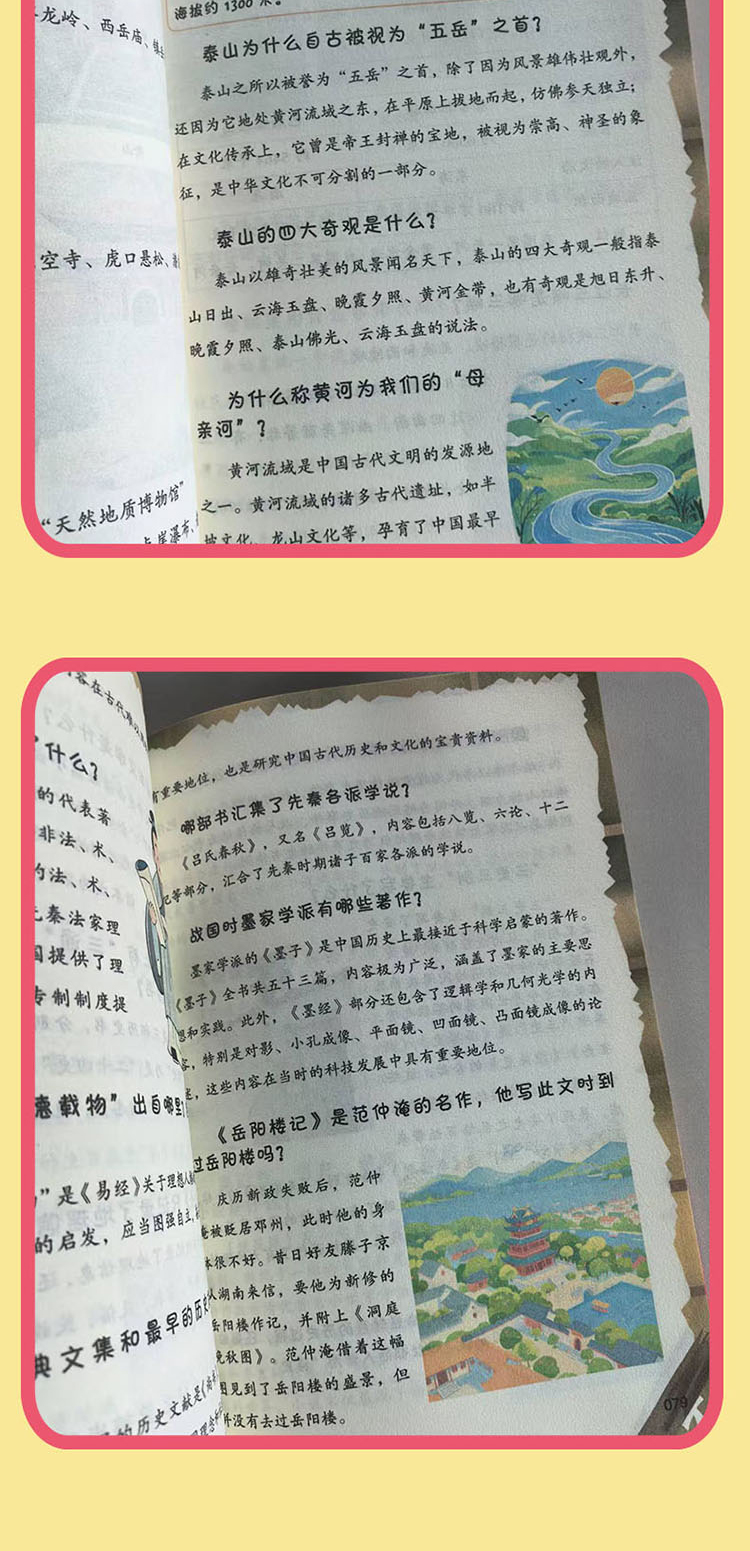 龙岭、西岳庙、镇
空寺、虎口悬松、
“天然地质博物馆”
海拔约 1300 米。
泰山为什么自古被视为“五岳”之首？
泰山之所以被誉为“五岳”之首，除了因为风景雄伟壮观外，
还因为它地处黄河流域之东，在平原上拔地而起，仿佛参天独立；
在文化传承上，它曾是帝王封禅的宝地，被视为崇高、神圣的象
征，是中华文化不可分割的一部分。
泰山的四大奇观是什么？
泰山以雄奇壮美的风景闻名天下，泰山的四大奇观一般指泰
山日出、云海玉盘、晚霞夕照、黄河金带，也有奇观是旭日东升、
晚霞夕照、泰山佛光、云海玉盘的说法。
为什么称黄河为我们的“母
亲河”？
黄河流域是中国古代文明的发源地
之一。黄河流域的诸多古代遗址，如半
坡文化、龙山文化等，孕育了中国最早
什么？
的代表著
非法、术、
的法、术、
秦法家理
国提供了理
专制制度提
德载物”出自哪里
”是《易经》关于理想人
的启发，应当图强自立，
典文集和最早的历史
的历史文献是《尚
有重要地位，也是研究中国古代历史和文化的宝贵资料。
哪部书汇集了先秦各派学说？
《吕氏春秋》，又名《吕览》，内容包括八览、六论、十二
纪等部分，汇合了先秦时期诸子百家各派的学说。
战国时墨家学派有哪些著作？
墨家学派的《墨子》是中国历史上最接近于科学启蒙的著作。
《墨子》全书共五十三篇，内容极为广泛，涵盖了墨家的主要思
想和实践。此外，《墨经》部分还包含了逻辑学和几何光学的内
容，特别是对影、小孔成像、平面镜、凹面镜、凸面镜成像的论
述，这些内容在当时的科技发展中具有重要地位。
《岳阳楼记》是范仲淹的名作，他写此文时到
过岳阳楼吗？
庆历新政失败后，范仲
淹被贬居邓州，此时他的身
体很不好。昔日好友滕子京
从湖南来信，要他为新修的
岳阳楼作记，并附上《洞庭
晚秋图》。范仲淹借着这幅
图见到了岳阳楼的盛景，但
并没有去过岳阳楼。
079